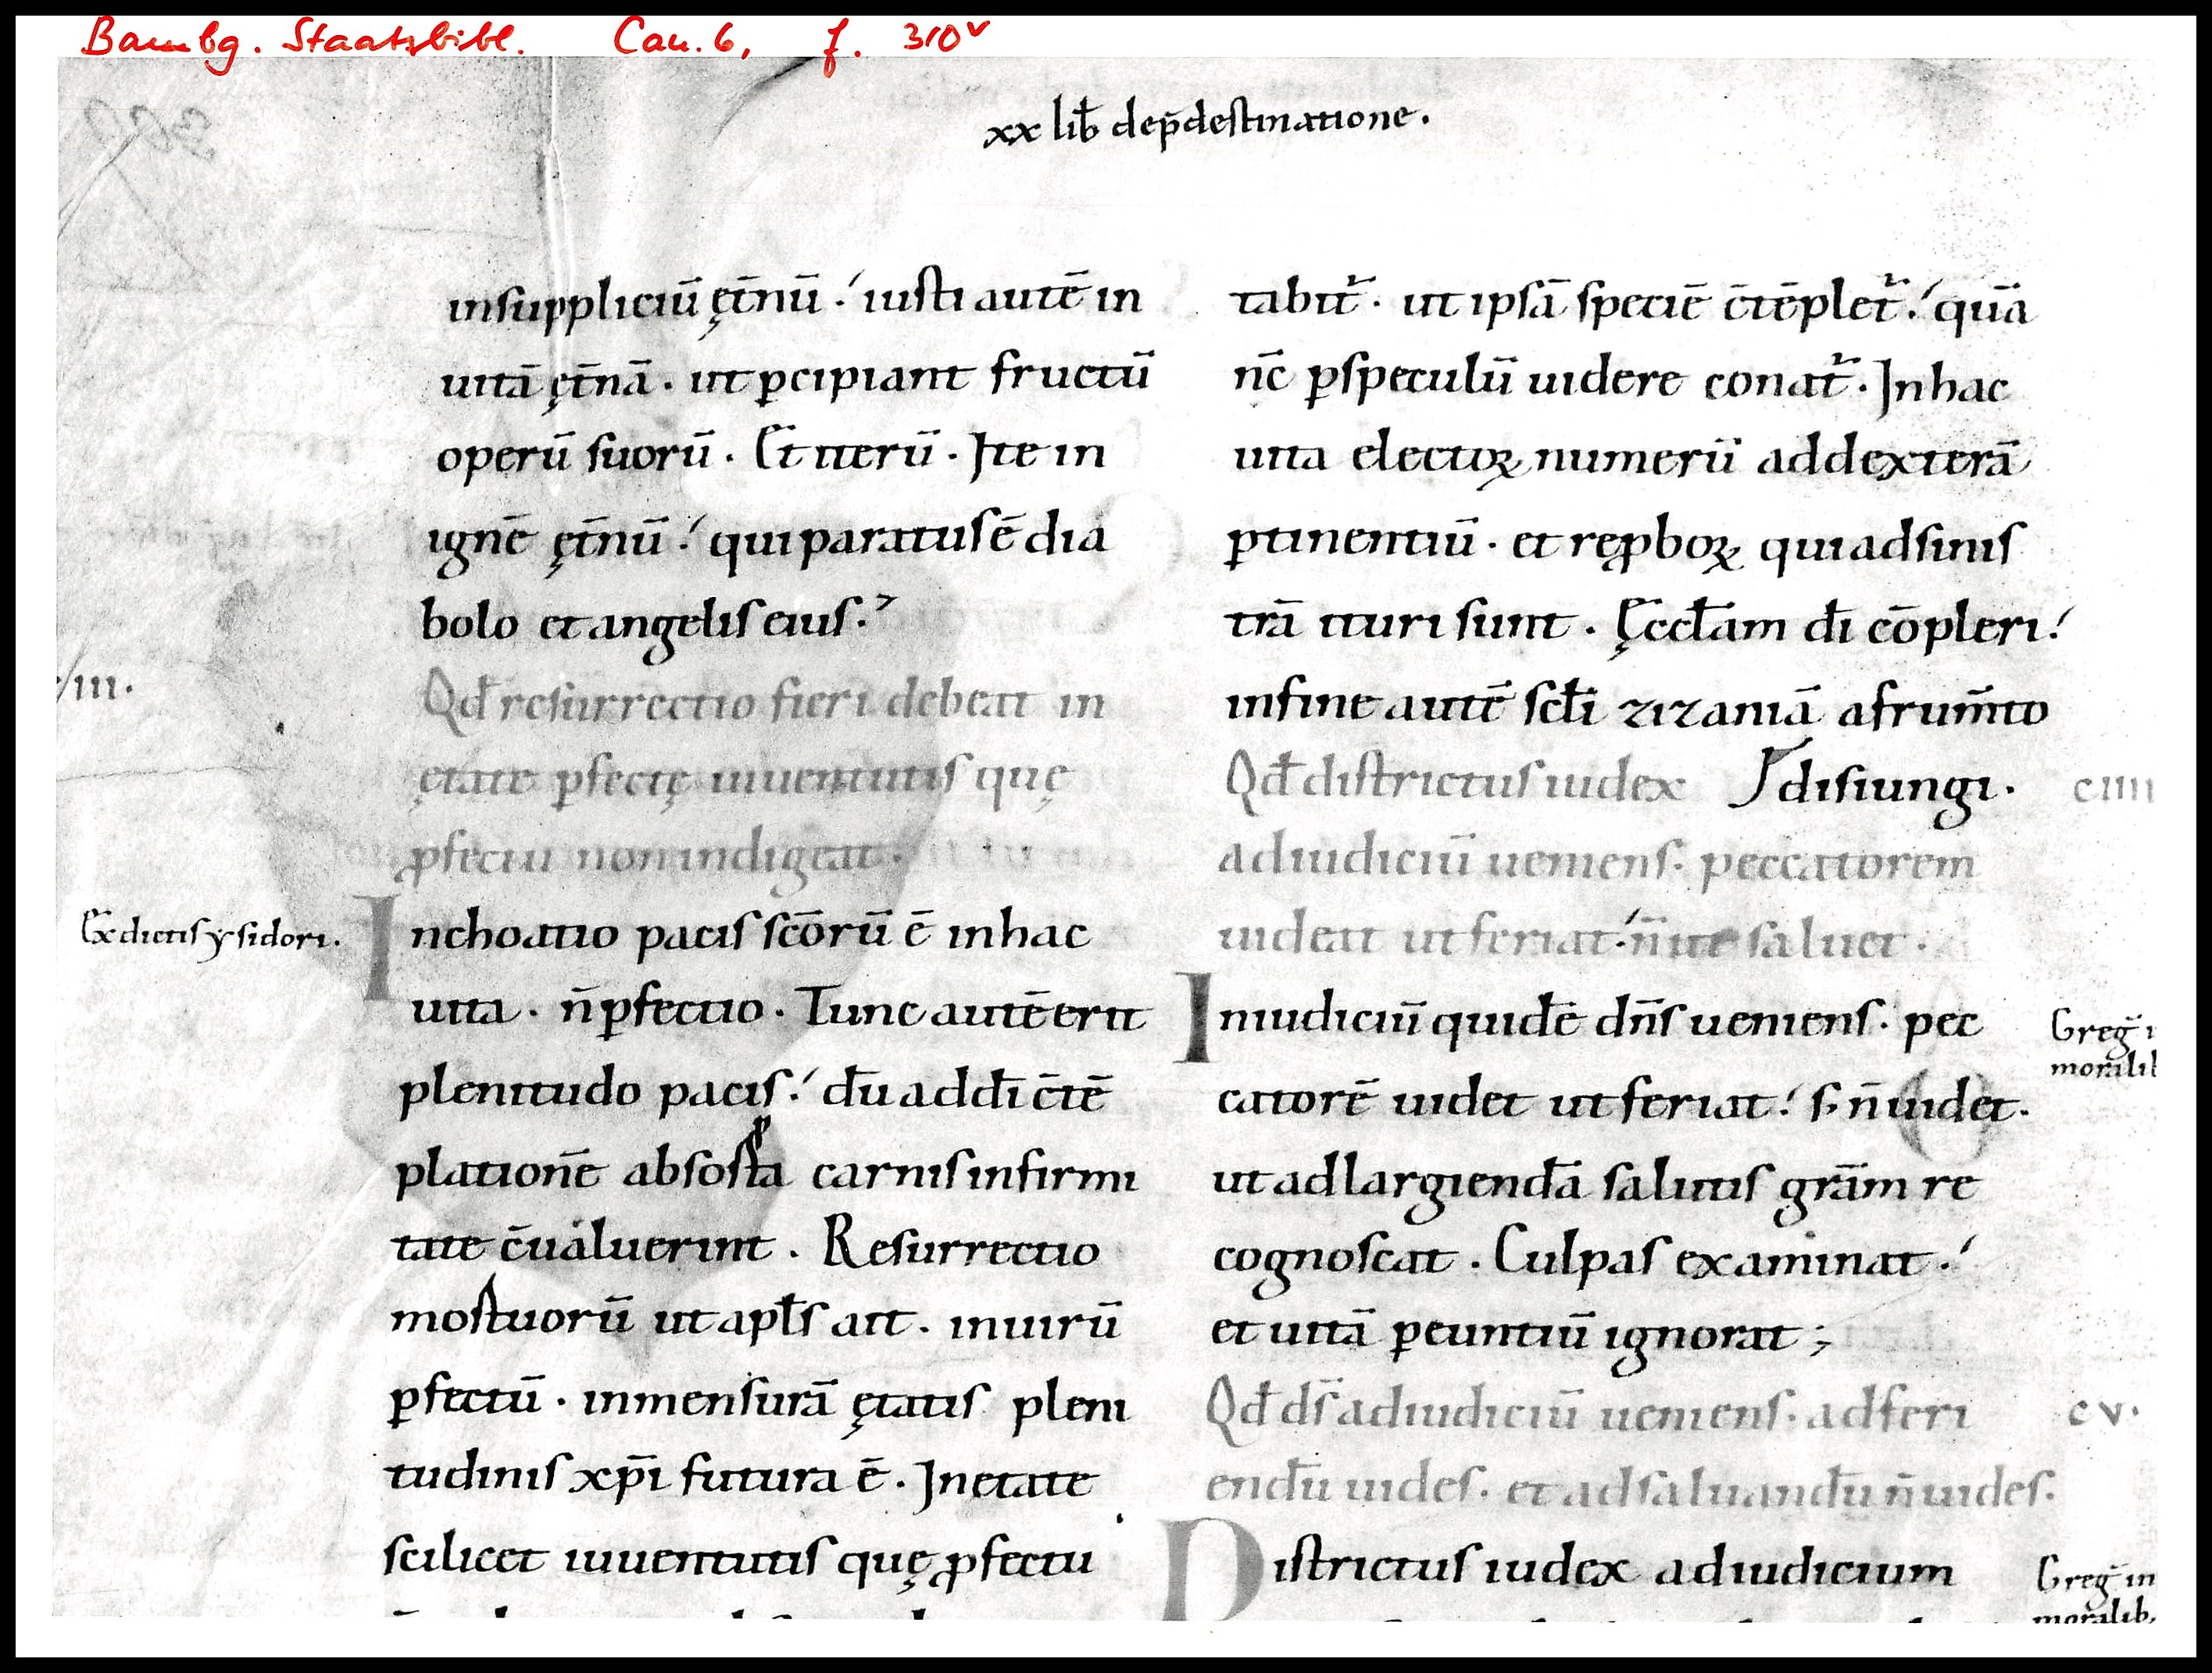 Bambg. Staatsbibl. Can. 6, f. 310v
xx lib̄ dep̄destinatione.
insuppliciū ęt̄nū. iusti autē in
uitā ęt̄nā. ut ꝑcipiant fructū
operū suorū. Et iterū. Ite in
ignē ęt̄nū. qui paratus ē dia
bolo et angelis eius.
/III.
Qd̄ resurrectio fieri debeat in
ętate ꝑfectę iuuentutis quę
ꝓfectu non indigeat.
Ex dictis ysidori.
Inchoatio pacis sc̄orū ē in hac
uita. n̄ ꝑfectio. Tunc autē erit
plenitudo pacis. dū ad dī c̄tē
plationē absorta carnis infirmi
tate c̄ualuerint. Resurrectio
mortuorū ut apl̄s ait. inuirū
ꝑfectū. inmensurā ętatis pleni
tudinis xp̄i futura ē. In etate
scilicet iuuentutis quę ꝓfectu
tabit᷑. ut ipsā speciē c̄tēplet᷑. quā
nc̄ ꝑspeculū uidere conat᷑. In hac
uita electoꝝ numerū ad dexterā
ꝑtinentiū. et reꝓboꝝ qui ad sinis
trā ituri sunt. Ęccl̄am dī cōpleri.
infine autē scl̄i zizaniā a frum̄to
disiungi.
CIIII
Qd̄ districtus iudex
ad iudiciū ueniens. peccatorem
uideat ut feriat. n̄ ut saluet.
In iudiciū quidē dn̄s ueniens. pec
Greḡ i
moralib
catorē uidet ut feriat. s; n̄ uidet.
ut ad largiendā salutis grām re
cognoscat. Culpas examinat.
et uitā ꝑeuntiū ignorat;
CV.
Qd̄ ds̄ ad iudiciū ueniens. ad feri
endū uides. et ad saluandū n̄ uides.
Districtus iudex ad iudicium
Greḡ in
moralib.